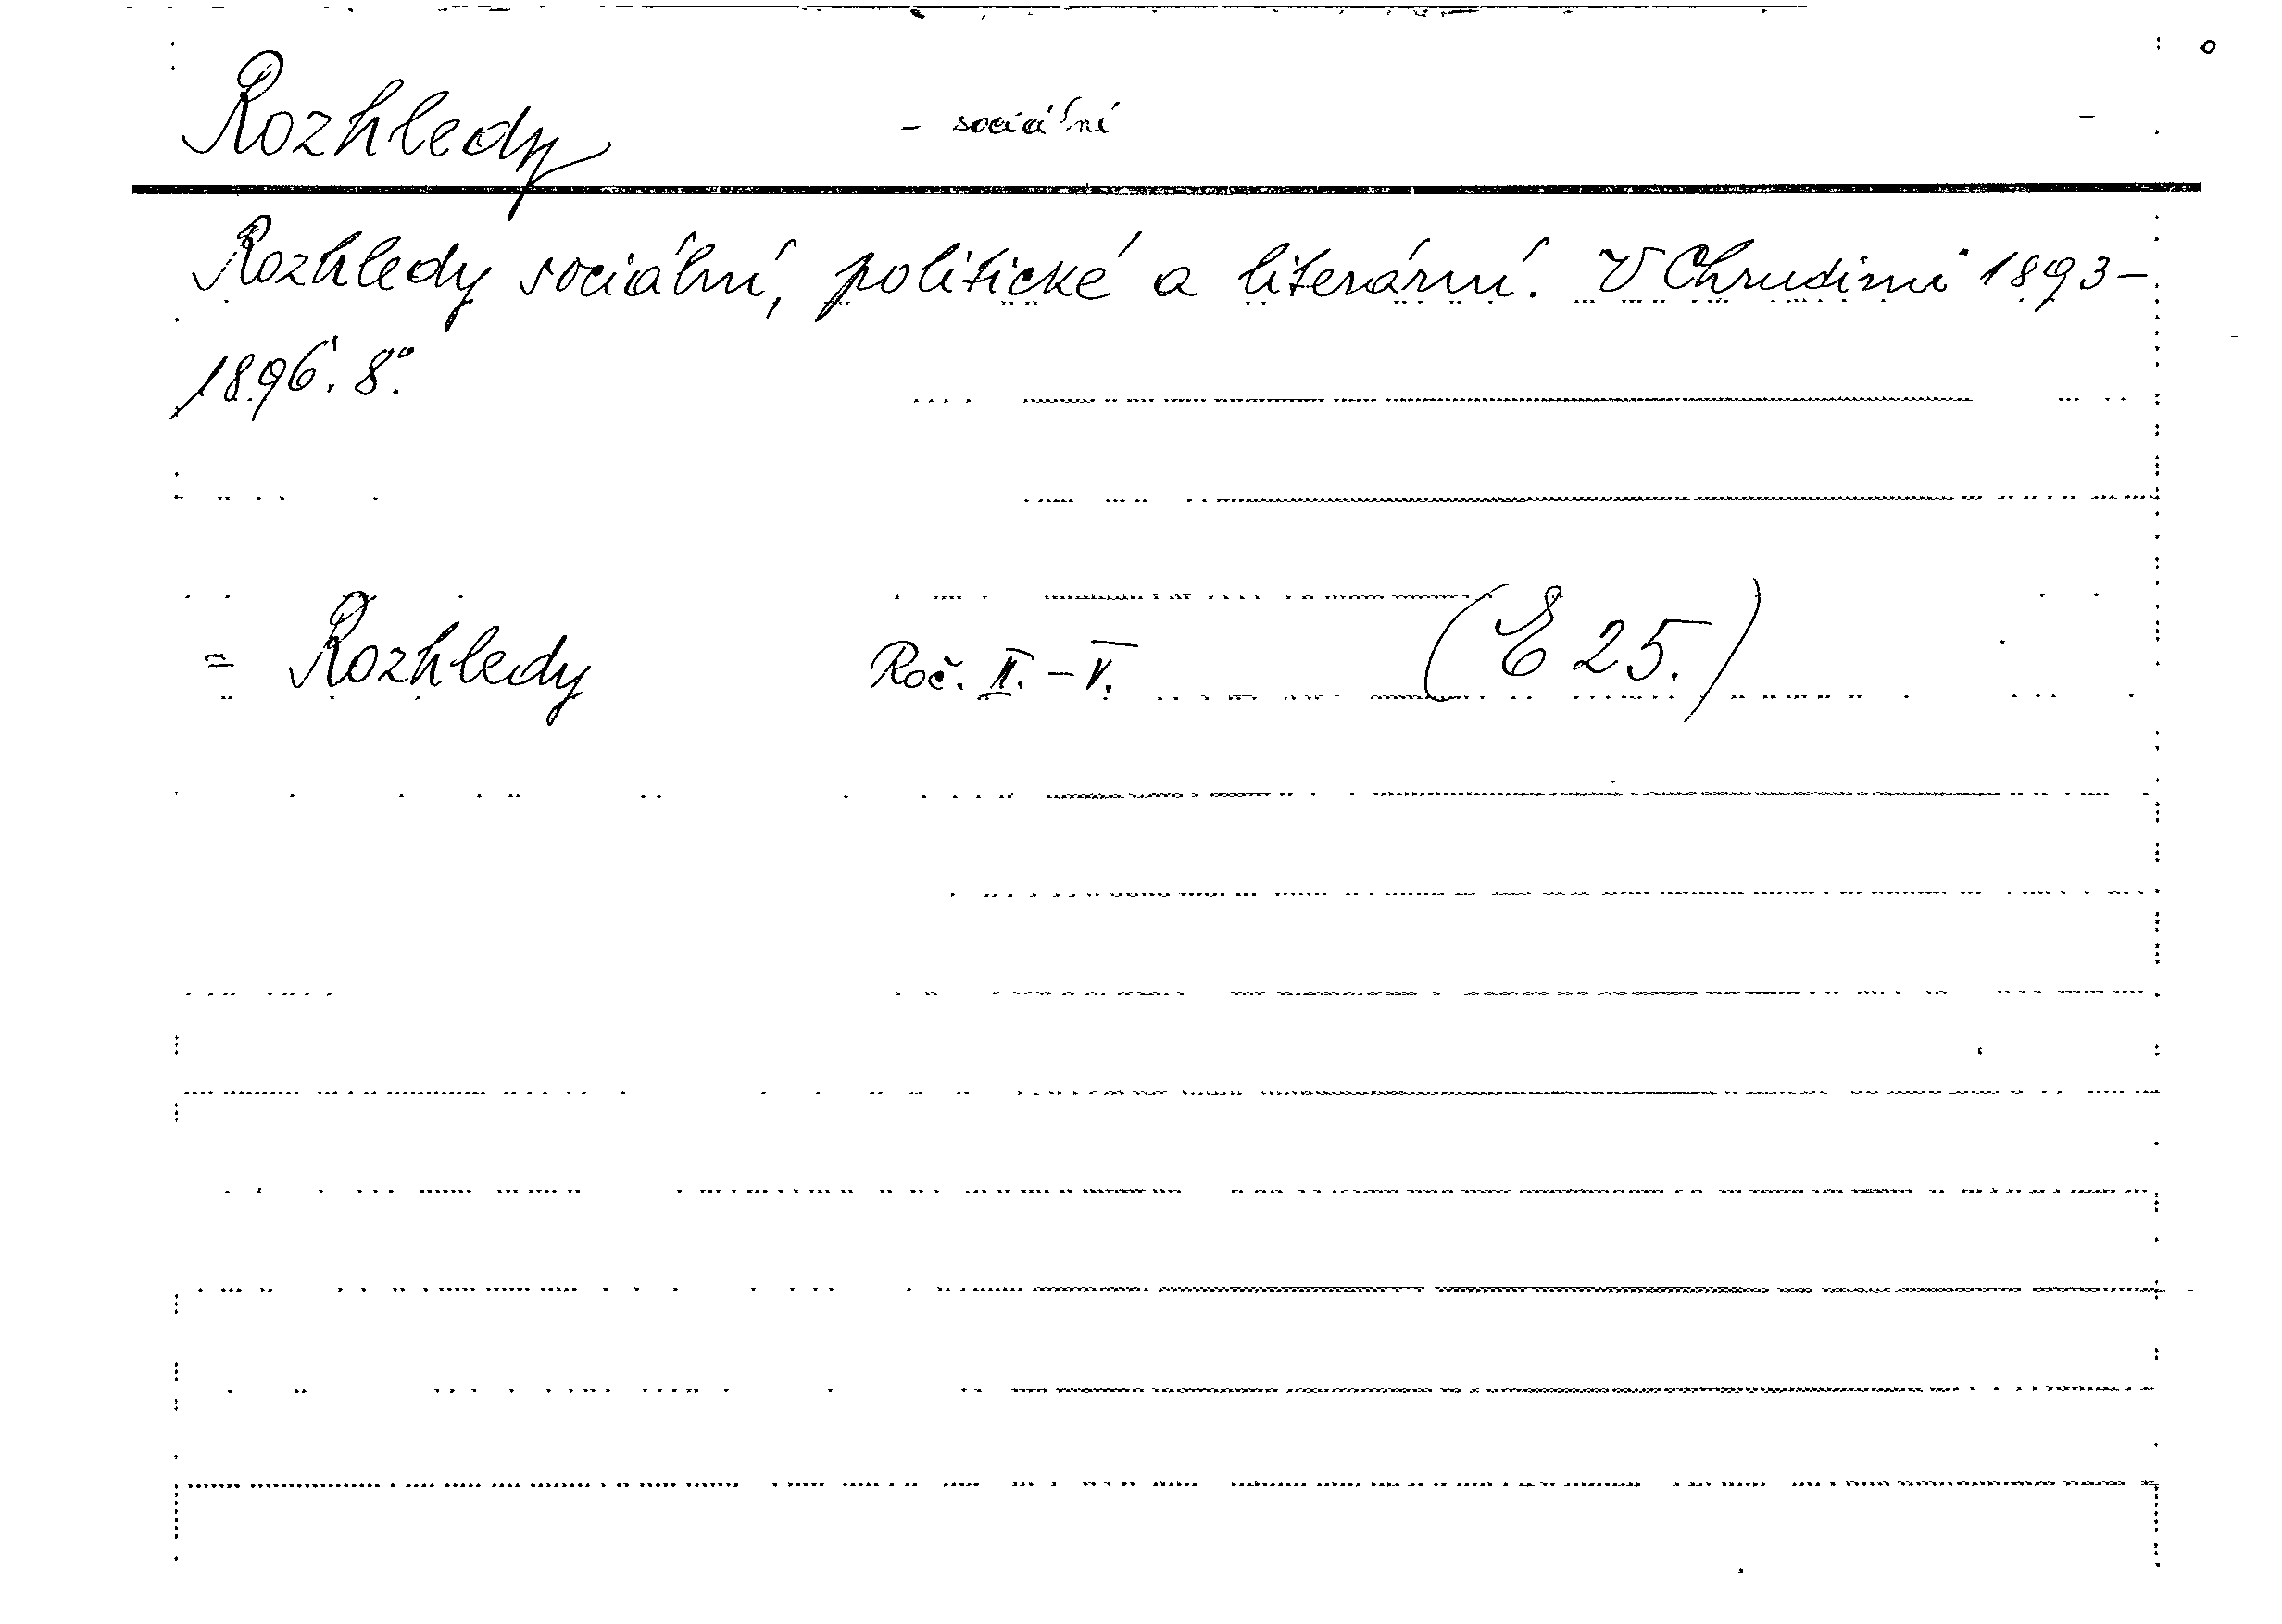 Rozhledy - sociální
Rozhledy sociální, politické a literární. V Chrudimi 1893-
1896. 8°.
= Rozhledy Roč. II.-V. (E 25.)